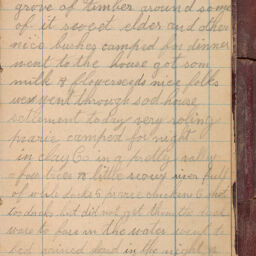 grove of timber around some
of it scoet elder and other
nice bushes camped for dinner
went to the house got som
milk & flowerseeds nice folks
went through sod house
setlement today very roling
prarie camped for night
in clay Co in a pretty vally
a few trees a little river full
of wild ducks & prarie chicken G shot
two ducks but did not get them the
were to fare in the water went to
bed rained hard in the night